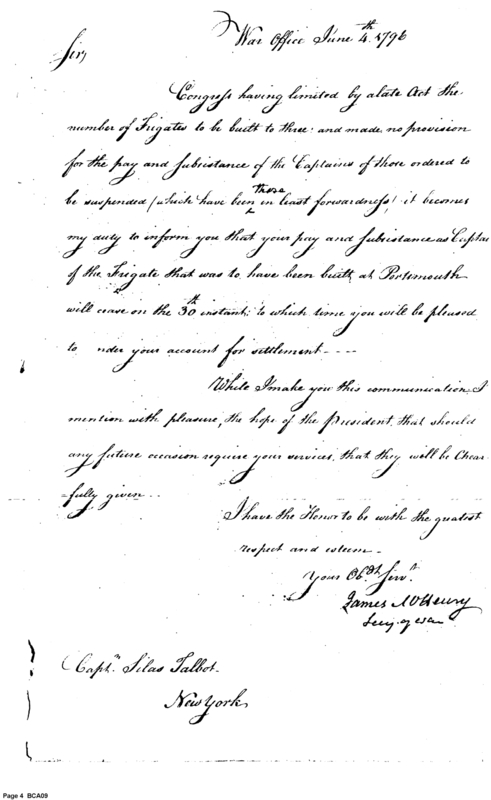 War Office June 4th 1796
Sir,
Congress having limited by a late Act the
number of Frigates to be built to three: and made no provision
for the pay and subsistance of the Captains of those ordered to
be suspended (which have been those in least forwardness) it becomes
my duty to inform you that your pay and subsistance as Captain
of the Frigate that was to have been built at Portsmouth
will cease on the 30th instant; to which time you will be pleased
to nder your account for settlement - - - -
While I make you this communication I
mention with pleasure, the hope of the President, that should
any future occasion require your services, that they will be Chear-
-fully given -
I have the Honor to be with the greatest
respect and esteem -
Your Obdt. Servt.
James McHenry
Secy. of war
Captn. Silas Talbot.
New York
Page 4 BCA09